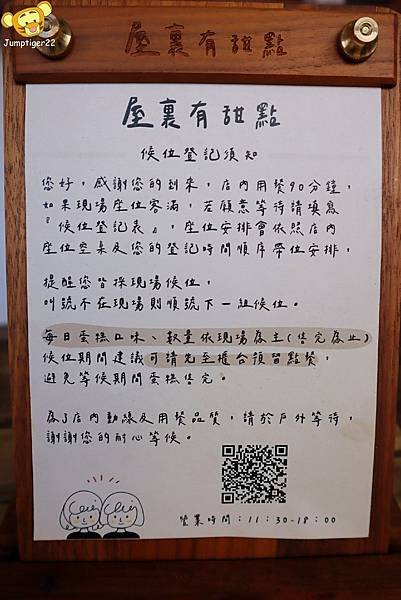 Jumptiger22
屋裏有甜點
屋裏有甜點
候位登記須知
您好,感謝您的到來,店內用餐90分鐘,
如果現場座位客滿,若願意等待請填寫
『候位登記表』,座位安排會依照店內
座位空桌及您的登記時間順序帶位安排,
提醒您皆採現場候位,
叫號不在現場則順號下一組候位。
每日蛋糕口味、數量依現場為主(售完為止)
候位期間建議可請先至櫃台預留點餐,
避免等候期間蛋糕售完。
為了店內動線及用餐品質,請於戶外等待,
謝謝您的耐心等候。
營業時間:11:30-18:00